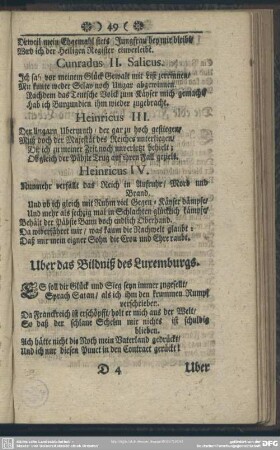 ) 49 (
Dieweil mein Ehgemahl stets Jungfrau bey mir bleibt
Werd ich der Heiligen Register einverleibt.
Cunradus II. Salicus.
Ich sah vor meinem Glück Gewalt mit List zerrinnen/
Mir kunte weder Selav noch Ungar abgewinnen.
Nachdem das Teutsche Volck zum Käyser mich gemacht
Hab ich Burgundien ihm wieder zugebracht.
Heinricus III.
Der Ungarn Ubermuth/ der gar zu hoch gestiegen/
Muß doch der Majestät des Reiches unterliegen/
Die ich zu meiner Zeit noch unverletzt behielt:
Obgleich der Pabste Trug auf ihren Fall gezielt.
Heinricus IV.
Nunmehr verfällt das Reich in Aufruhr/ Mord und
Brand,
Und ob ich gleich mit Ruhm viel Gegen-Käyser dämpfte/
Und mehr als sechzig mal in Schlachten glücklich kämpfte/
Behält der Pabste Bann doch endlich Oberhand.
Da widerfähret mir/ was kaum die Nachwelt glaubt:
Daß mir mein eigner Sohn die Cron und Ehre raubt.
Uber das Bildniß des Luxemburgs.
ES soll dir Glück und Sieg seyn immer zugesellt/
Sprach Satan/ als ich ihm den krummen Rumpf
verschrieben.
Da Franckreich ist erschöpfft/ holt er mich aus der Welt/
So daß der schlaue Schelm mir nichts ist schuldig
blieben.
Ach hätte nicht die Noth mein Vaterland gedrückt/
Und ich nur diesen Punct in den Contract gerückt!
D 4
Uber